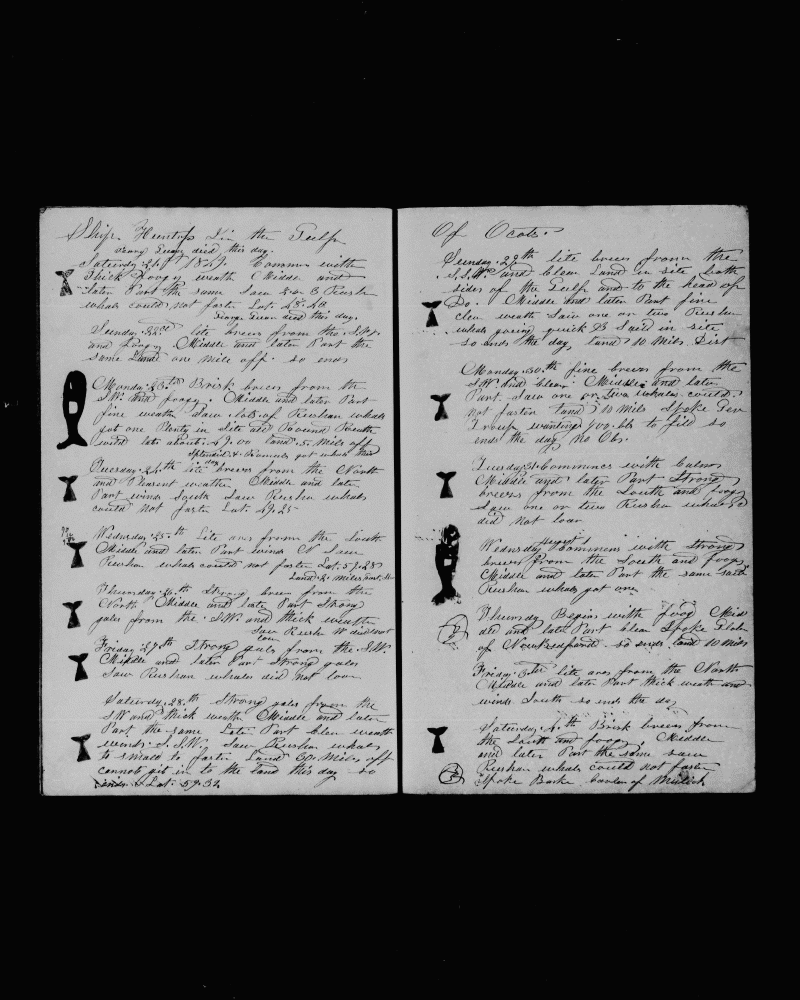 Ship. Huntress In the Gulf
George Green died this day.
Saturday 21st 18 Commens with
Thick Foogy weath Middle and
later Part the same Saw 2 or 3 Rushn
whals could not fasten Lat. 58.
George Green died this day.
Sunday 22nd lite brees from the S.W.
and Foogy Middle and later Part the
same Land one mile off. so ends
Monday 23rd Brisk brees from the
S.W. and foogy. Middle and later Part
fine weath Saw lots of Rushan whals
got one Plenty in Site all Bound South
land 5 Mils off
Splendid & got whals this
day
Tuesday 24th lite brees from the North
and Plesent weather Middle and later
Part winds South Saw Rushn whals
could not fasten Lat. 59.25
Wednsday 25th Lite ars from the South
Middle and later Part winds N Saw
Rushn whals could not fasten Lat. 57.28
Land 2 miles
Thursday 26th Strong brees from the
North Middle and late Part Strong
gales from the S.W and thick weather
Saw Rushn W did not
low
Friday 27th Strong gals from the S.W.
Middle and later Part Strong gales
Saw Rushan whales did not low
Saturday 28th Strong gales from the
S W and thick weath Middle and later
Part the same Later Part clear weath
winds S.S.W. Saw Rushan whals
to small to fasten Land 60 Mils off
cannot git in to the land this day so
ends Lat. 59.32
Of Ocots
Sunday 29th lite brees from the
S.S.W. and clear Land in site both
sides of the Gulf and to the head of
Do. Middle and later Part fine
clear weath Saw one or two Rushan
whals going quick Sail in site
so ends the day, land 10 Mils Dist
Monday 30th fine brees from the
S.W. and clear Middle and later
Part Saw one or two whales could
not fasten land 10 Mils Spoke Gen
Troup wanting 400 bls to fill so
ends the day no Obs.
Tuesday 31 Commences with Calms
Middle and later Part Strong
brees from the South and foogy
Saw one or two Rushan whals
did not loar
August 1
Wednsday Commens with Strong
brees from the South and foogy
Middle and later Part the same Saw
Rushan whals got one
2 Thursday Begins with foog Mid
dle and later Part clear Spoke Ship
of Newbedford so ends land 10 Mils
Friday 3rd lite ars from the North
Middle and later Part thick weath and
winds South so ends the day
Saturday 4th Brisk brees from
the South and foogy Middle
and later Part the same saw
Rushan whals could not fasten
Spoke Barke of